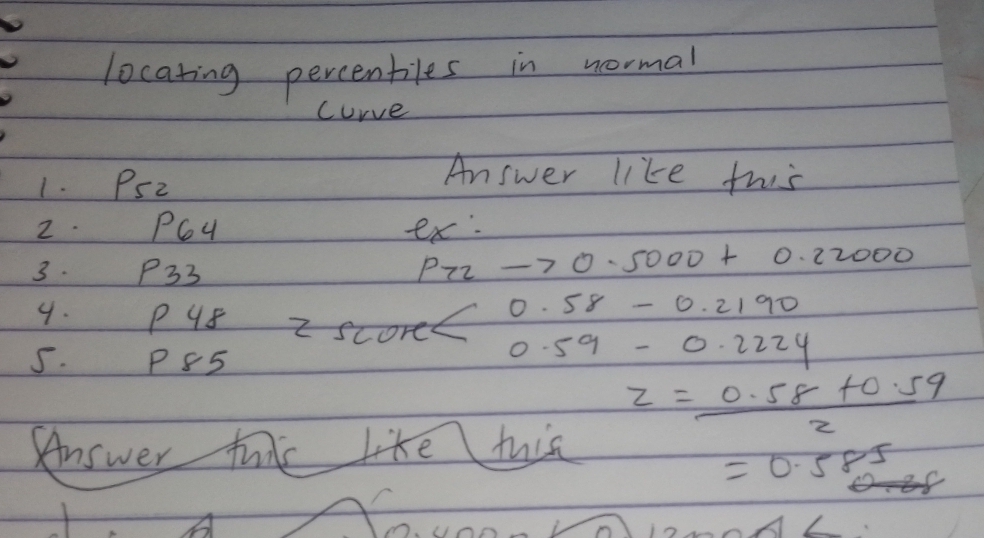 locating percentiles in normal
curve
Answer like this
1. P52
2. P64
ex:
3. P33
P72 -> 0.5000 + 0.22000
4. P48
z score < 0.58 - 0.2190
5. P85
0.59 - 0.2224
z = 0.58 + 0.59
2
Answer this like this
= 0.585